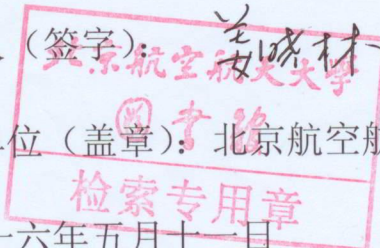 （签字）：
北京航空航天大学
图书馆
位（盖章）：北京航空航
检索专用章
六年五月十一日